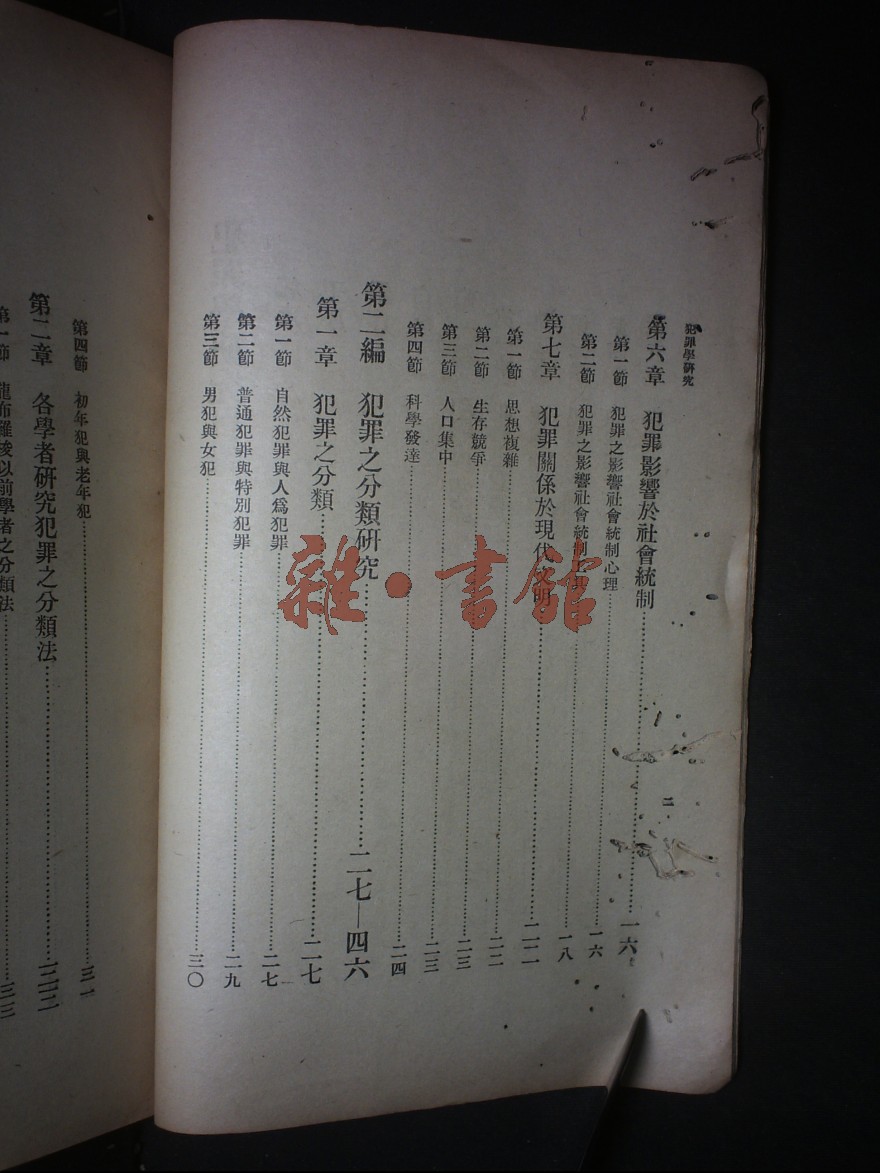 犯罪學研究
二
第六章　犯罪影響於社會統制……一六
第一節　犯罪之影響社會統制心理……一六
第二節　犯罪之影響社會統制工具……一八
第七章　犯罪關係於現代文明……二二
第一節　思想複雜……二二
第二節　生存競爭……二三
第三節　人口集中……二三
第四節　科學發達……二四
第二編　犯罪之分類研究……二七—四六
第一章　犯罪之分類……二七
第一節　自然犯罪與人爲犯罪……二七
第二節　普通犯罪與特別犯罪……二九
第三節　男犯與女犯……三〇
第四節　初年犯與老年犯……三一
第二章　各學者研究犯罪之分類法……三二
第一節　龍布羅梭以前學者之分類法……三三
雜·書館